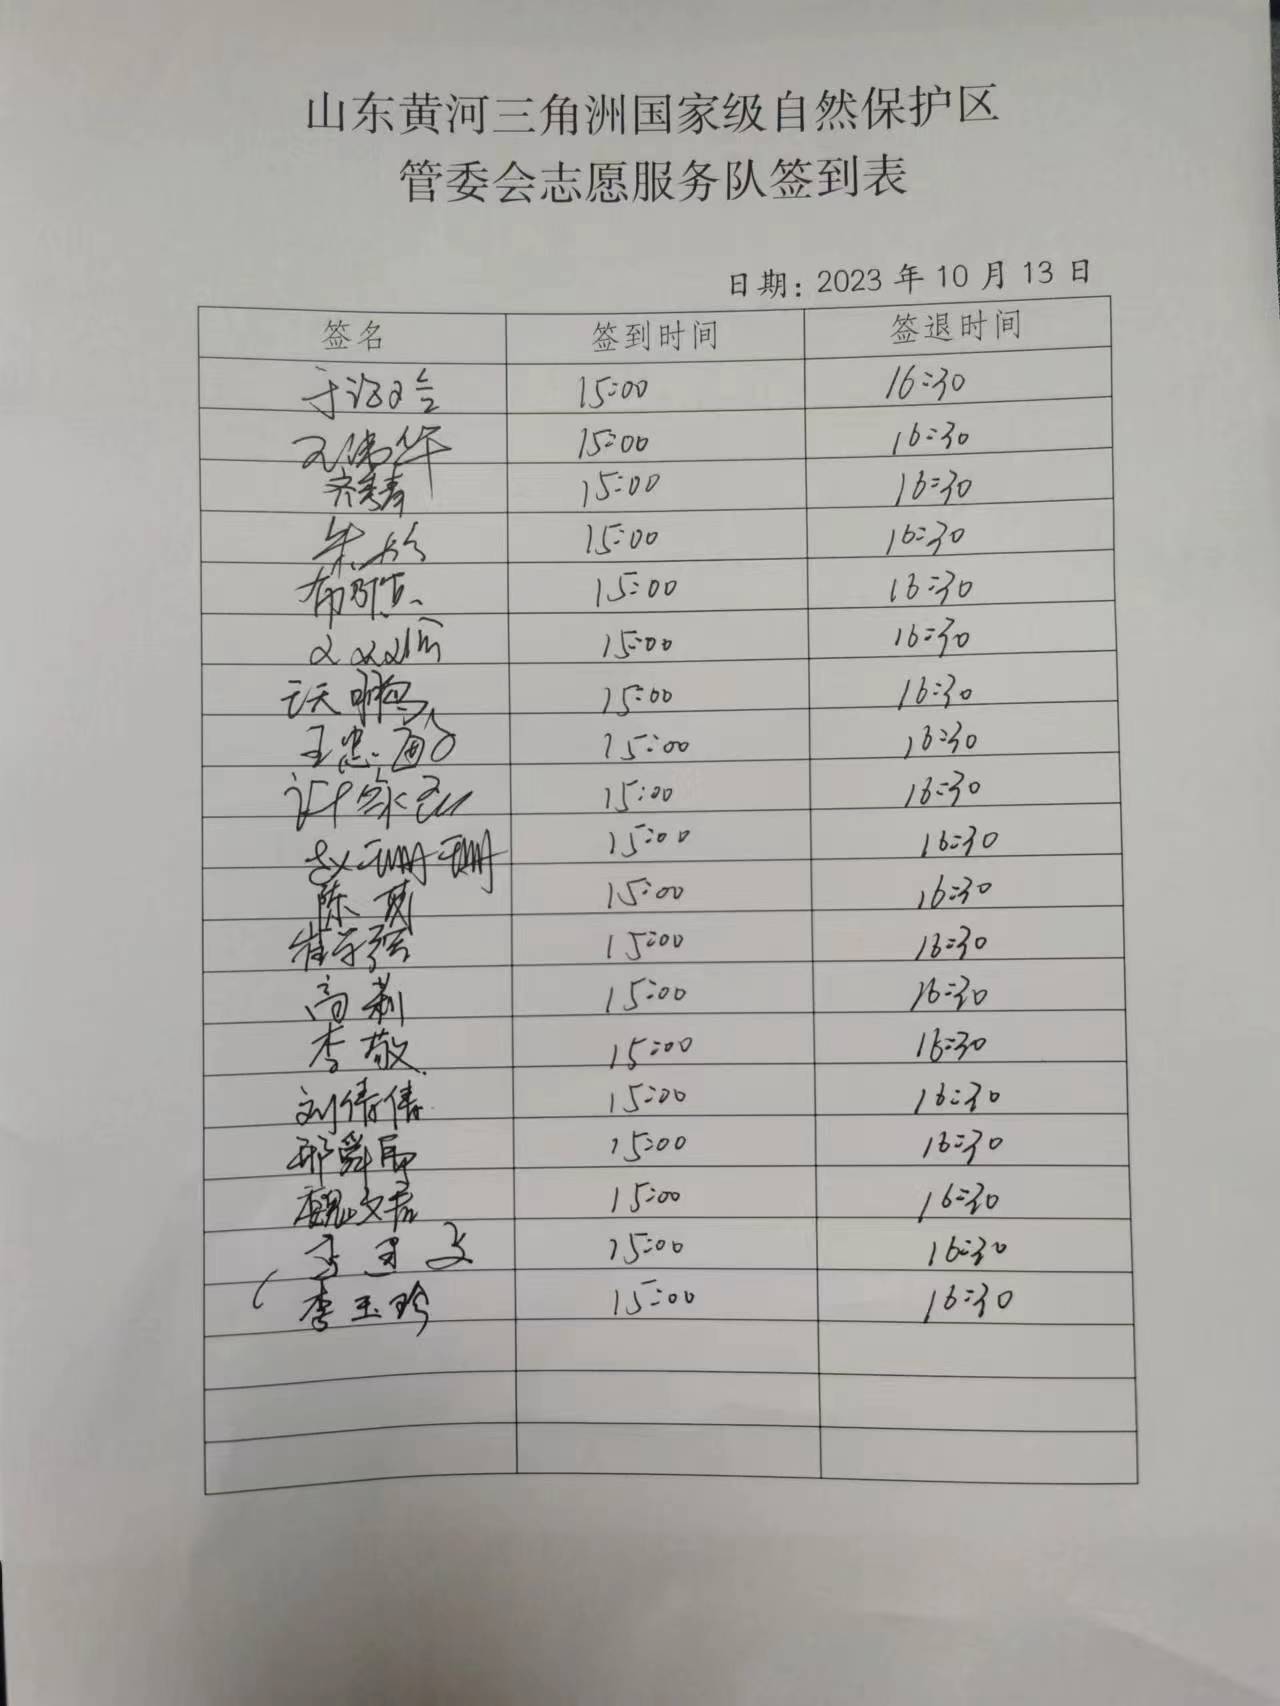 山东黄河三角洲国家级自然保护区
管委会志愿服务队签到表
日期：2023 年 10 月 13 日
签名 签到时间 签退时间
15:00 16:30
15:00 16:30
15:00 16:30
朱 15:00 16:30
15:00 16:30
15:00 16:30
15:00 16:30
王忠 15:00 16:30
许家 15:00 16:30
赵珊珊 15:00 16:30
陈 15:00 16:30
崔 15:00 16:30
高莉 15:00 16:30
李敬 15:00 16:30
刘倩倩 15:00 16:30
邢舜禹 15:00 16:30
魏文君 15:00 16:30
15:00 16:30
李玉珍 15:00 16:30